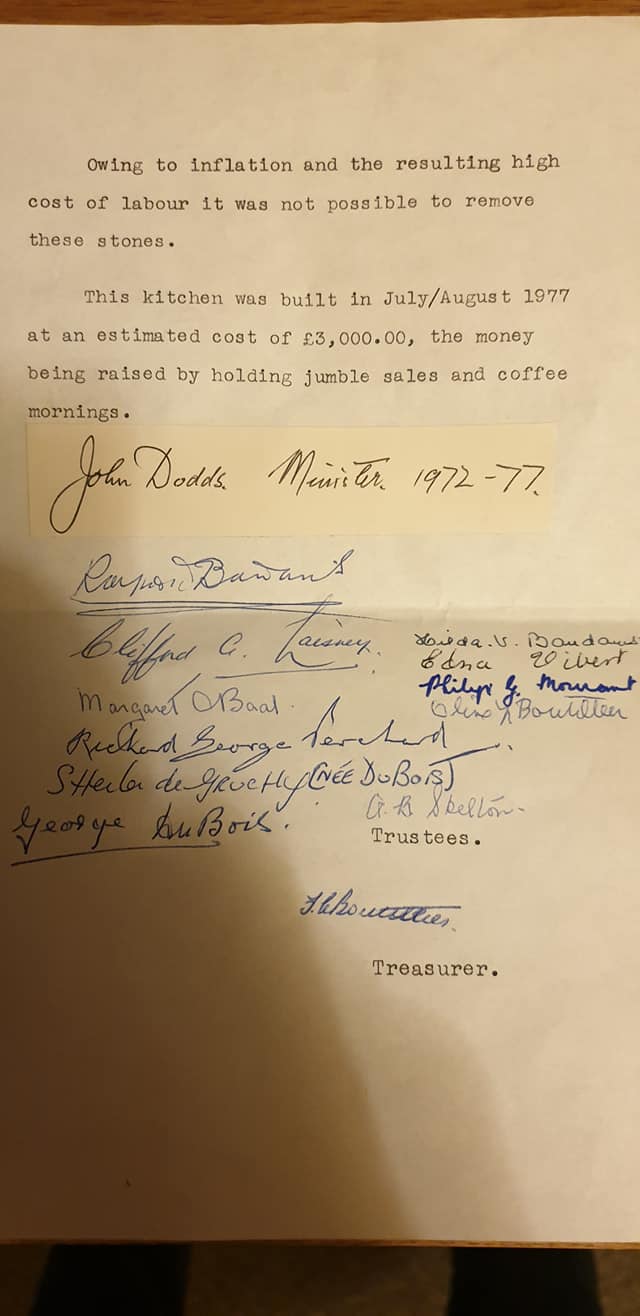 Owing to inflation and the resulting high
cost of labour it was not possible to remove
these stones.
This kitchen was built in July/August 1977
at an estimated cost of £3,000.00, the money
being raised by holding jumble sales and coffee
mornings.
John Dodds. Minister. 1972-77.
Clifford G. Laisney.
Edna Vibert
Philip G. Mourant
Margaret Baal.
Richard George Perchard
Sheila de Gruchy (NÉE DuBois)
George DuBois.
G. B Skelton.
Trustees.
Treasurer.